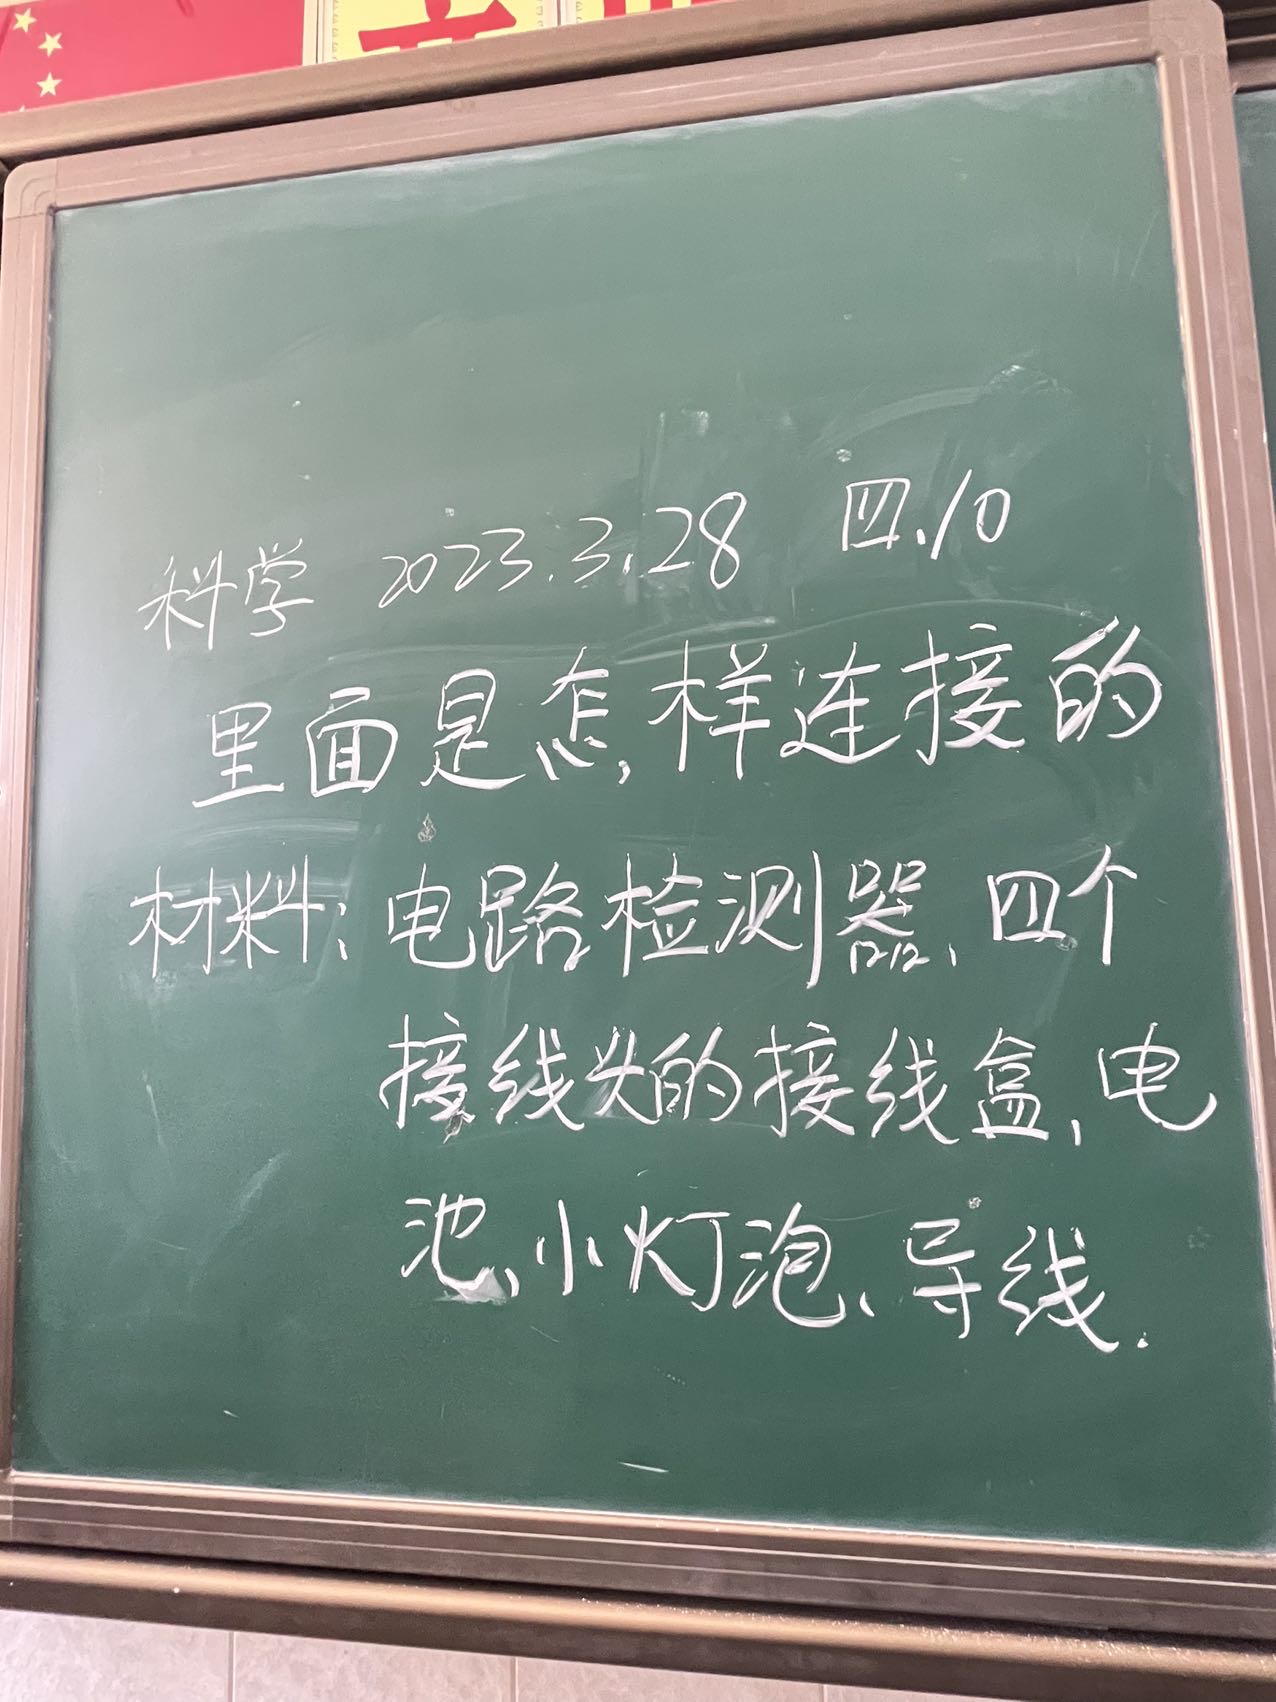 科学 2023.3.28 四.10
里面是怎样连接的
材料:电路检测器、四个
接线头的接线盒、电
池、小灯泡、导线.